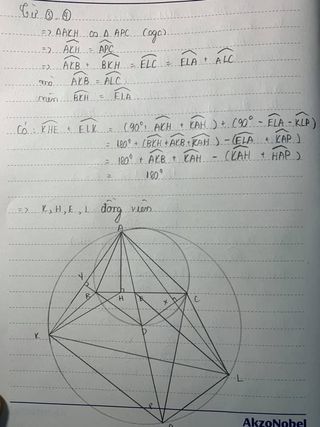 Từ ③, ④
=> ΔAKH ∽ Δ APC (cgc)
=> AKH = APC
=> AKB + BKH = ELC = ELA + ALC
mà AKB = ALC
nên BKH = ELA
Có: KHE + ELK = (90° + AKH + KAH) + (90° - ELA - KLP)
= 180° + (BKH + AKB + KAH) - (ELA + KAP)
= 180° + AKB + KAH - (KAH + HAP)
= 180°
=> K, H, E, L đồng viên
A
Y
B H E X C
O
K
L
P
AkzoNobel